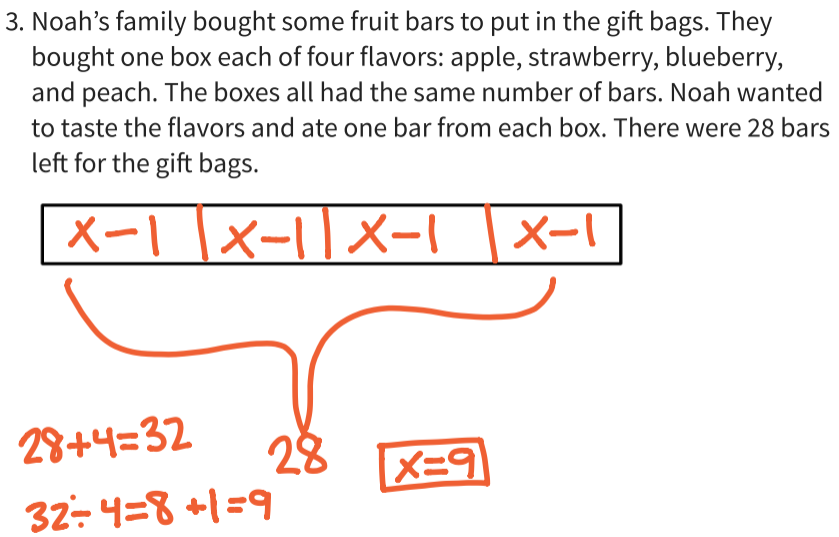 3. Noah's family bought some fruit bars to put in the gift bags. They
bought one box each of four flavors: apple, strawberry, blueberry,
and peach. The boxes all had the same number of bars. Noah wanted
to taste the flavors and ate one bar from each box. There were 28 bars
left for the gift bags.
x-1 | x-1 | x-1 | x-1
28+4=32
28
x=9
32÷4=8 +1=9